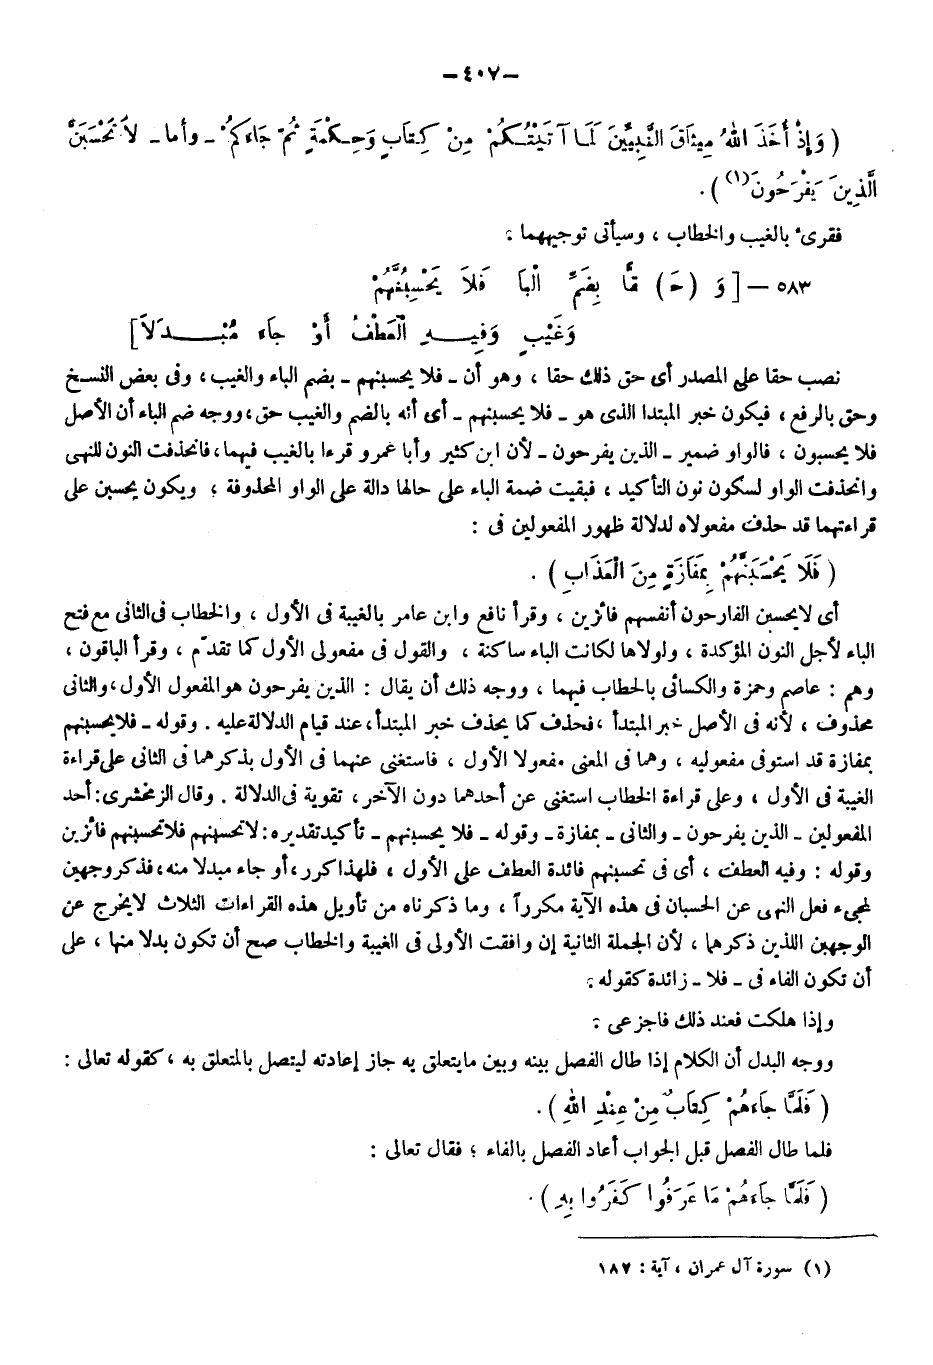 — ٤٠٧ —
( وَإِذْ أَخَذَ اللهُ مِيثَاقَ النَّبِيِّينَ لَمَا آتَيْتُكُمْ مِنْ كِتَابٍ وَحِكْمَةٍ ثُمَّ جَاءَكُمْ ـ وأما ـ لاَ تَحْسَبَنَّ
الَّذِينَ يَفْرَحُونَ (١) ) .
فقرىء بالغيب والخطاب ، وسيأتى توجيههما :
٥٨٣ — [ وَ (حَـ) قًّا بِضَمِّ الْبَا فَلاَ يَحْسِبُنَّهُمْ
وَغَيْبٍ وَفِيهِ الْعَطْفُ أَوْ جَاءَ مُبْدَلاَ ]
نصب حقا على المصدر أى حق ذلك حقا ، وهو أن ـ فلا يحسبنهم ـ بضم الباء والغيب ، وفى بعض النسخ
وحق بالرفع ، فيكون خبر المبتدا الذى هو ـ فلا يحسبنهم ـ أى أنه بالضم والغيب حق ، ووجه ضم الباء أن الأصل
فلا يحسبون ، فالواو ضمير ـ الذين يفرحون ـ لأن ابن كثير وأبا عمرو قرءا بالغيب فيهما ، فانحذفت النون للنهى
وانحذفت الواو لسكون نون التأكيد ، فبقيت ضمة الباء على حالها دالة على الواو المحذوفة ؛ ويكون يحسبن على
قراءتهما قد حذف مفعولاه لدلالة ظهور المفعولين فى :
( فَلَا يَحْسَبَنَّهُمْ بِمَفَازَةٍ مِنَ الْعَذَابِ ) .
أى لايحسبن الفارحون أنفسهم فائزين ، وقرأ نافع وابن عامر بالغيبة فى الأول ، والخطاب فى الثانى مع فتح
الباء لأجل النون المؤكدة ، ولولاها لكانت الباء ساكنة ، والقول فى مفعولى الأول كما تقدّم ، وقرأ الباقون ،
وهم : عاصم وحمزة والكسائى بالخطاب فيهما ، ووجه ذلك أن يقال : الذين يفرحون هو المفعول الأول ، والثانى
محذوف ، لأنه فى الأصل خبر المبتدأ ، فحذف كما يحذف خبر المبتدأ ، عند قيام الدلالة عليه . وقوله ـ فلا يحسبنهم
بمفازة قد استوفى مفعوليه ، وهما فى المعنى مفعولا الأول ، فاستغنى عنهما فى الأول بذكرهما فى الثانى على قراءة
الغيبة فى الأول ، وعلى قراءة الخطاب استغنى عن أحدهما دون الآخر ، تقوية فى الدلالة . وقال الزمخشرى : أحد
المفعولين ـ الذين يفرحون ـ والثانى ـ بمفازة ـ وقوله ـ فلا يحسبنهم ـ تأكيد تقديره : لاتحسبنهم فلاتحسبنهم فائزين
وقوله : وفيه العطف ، أى فى تحسبنهم فائدة العطف على الأول ، فلهذا كرر ، أو جاء مبدلا منه ، فذكر وجهين
لمجىء فعل النهى عن الحسبان فى هذه الآية مكرراً ، وما ذكرناه من تأويل هذه القراءات الثلاث لايخرج عن
الوجهين اللذين ذكرهما ، لأن الجملة الثانية إن وافقت الأولى فى الغيبة والخطاب صح أن تكون بدلا منها ، على
أن تكون الفاء فى ـ فلا ـ زائدة كقوله :
وإذا هلكت فعند ذلك فاجزعى :
ووجه البدل أن الكلام إذا طال الفصل بينه وبين مايتعلق به جاز إعادته ليتصل بالمتعلق به ، كقوله تعالى :
( فَلَمَّا جَاءَهُمْ كِتَابٌ مِنْ عِنْدِ اللهِ ) .
فلما طال الفصل قبل الجواب أعاد الفصل بالفاء ؛ فقال تعالى :
( فَلَمَّا جَاءَهُمْ مَا عَرَفُوا كَفَرُوا بِهِ ) .
(١) سورة آل عمران ، آية : ١٨٧